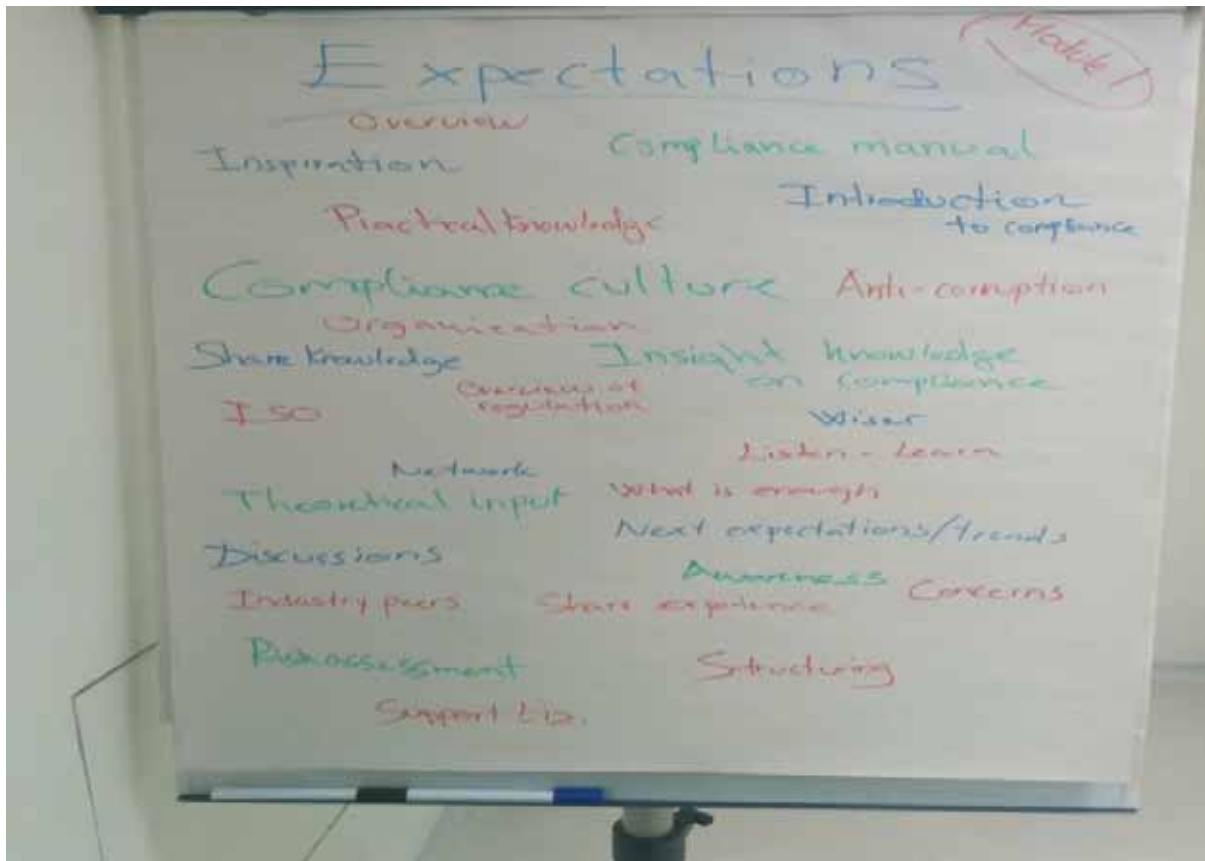 Expectations
Module 1
Overview
Inspiration
Compliance manual
Introduction
to compliance
Practical knowledge
Compliance culture
Anti-corruption
Organization
Share knowledge
Insight knowledge
on compliance
Overview of
regulation
ISO
Wiser
Listen - Learn
Network
Theoretical input
What is enough
Next expectations/trends
Discussions
Awareness
Concerns
Industry peers
Share experience
Risk assessment
Structuring
Support